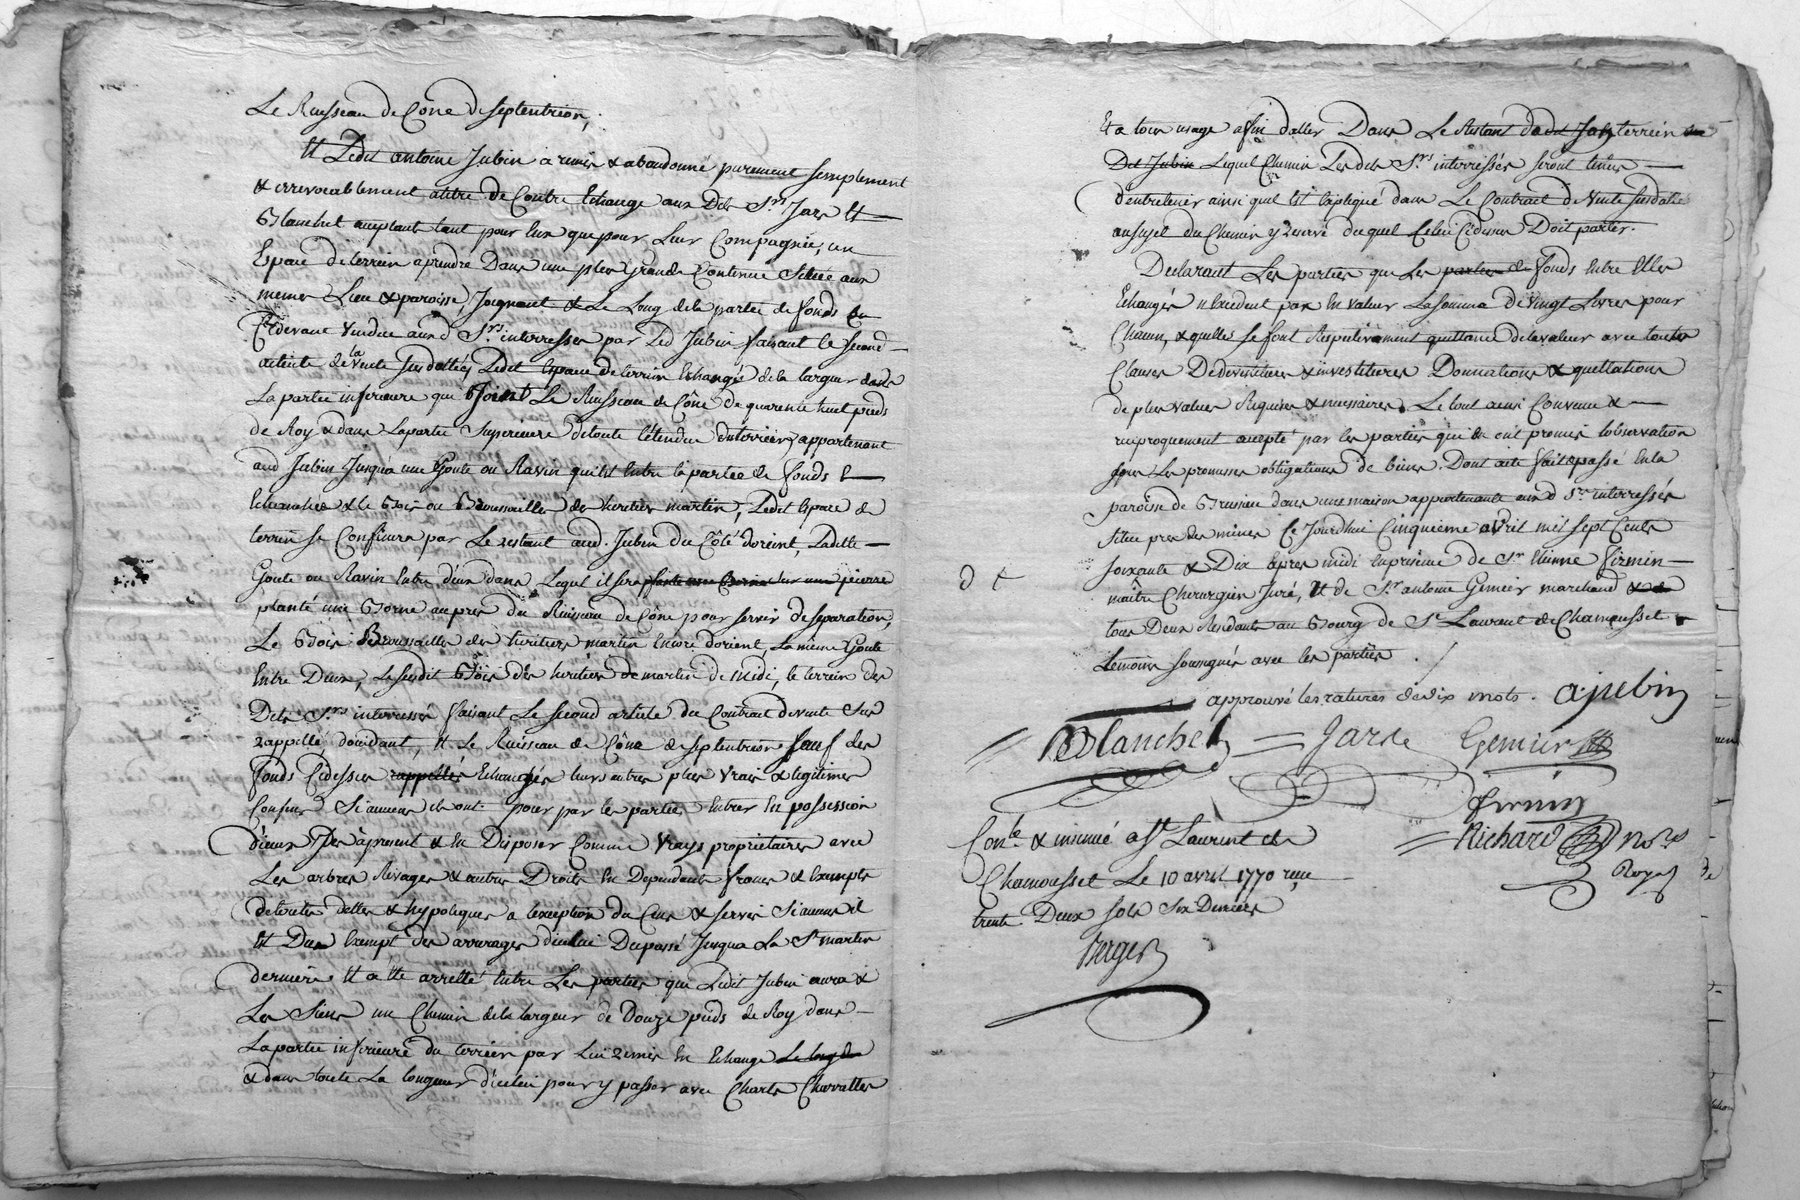 Le Ruisseau de Cône de septentrion,
Et Ledit antoine Jubin a remis & abandonné purement semplement
& irrevocablement atitre de Contre Echange aux Dits Srs Jars Et
Blanchet aceptants tant pour Eux que pour Leur Compagnie, un
Espace de terrein aprendre Dans une plus grande Continue Située aux
memes Lieu & paroisse, Joignant & Le Long de la partie de fonds
Cidevant vendue aux d Srs interressés par Led Jubin faisant le second
article de la vente susdattée, Ledit Espace de terrein Echangé de la largeur dans
La partie inferieure qui Joint Le Ruisseau de Cône de quarente huit pieds
de Roy & dans Lapartie Superieure de toute l'étendue du terrein appartenant
aud Jubin Jusqu'a une Goute ou Ravin qui est Entre la partie de fonds
Echangée & le Bois ou Broussailles des heritiers martin, Ledit Espace de
terrein se Confinera par Le restant aud. Jubin du Côté d'orient, Ladite
Goute ou Ravin Entre d'eux dans Lequel il sera plante une Borne sur une pierre
planté une Borne aupres du Ruisseau de Cône pour servir de separation,
Le Bois Broussailles des heritiers martin Encore d'orient, La même Goute
Entre Deux, Le susdit Bois des heritiers de martin de midi, le terrein des
Dits Srs interressés faisant Le second article du Contract de vente Sus
rappellé d'occidant, Et Le Ruisseau de Cône de septentrion sauf des
fonds Cidessus rappellés Echangés leurs autres plus vrais & legitimes
Confins Si aucuns ils ont pour par les parties Entrer En possession
d'iceux Dès àpresent & En Disposer Comme Vrays propriétaires avec
Les arbres Rivages & autres Droits En Dependants francs & Exempts
de toutes dettes & hypoteques a l'exception du Cens & servis Si aucuns il
Est Dus Exempt des arrerages d'icelui Du passé Jusqua La St martin
derniere Et a été arretté Entre Les parties que Ledit Jubin aura &
Les Siens un Chemin de la largeur de Douze pieds de Roy dans
La partie inferieure du terrein par Lui remis En Echange Le long de
& dans toute La longueur d'icelui pour y passer avec Chars Charrettes
Et a tous usage afin d'aller Dans Le Restant dudit Jub terrein
Dit Jubin Lequel Chemin Lesdits Srs interressés seront tenus
D'entretenir ainsi quil Est Expliqué dans Le Contract de Vente susdatté
au sujet du Chemin y reservé duquel Celui Cidessus Doit partir.
Declarant Les parties que Les parties de fonds Entre Elles
Echangés n'excedent pas En valeur La somme de vingt Livres pour
Chacun, & quelles se font Respectivement quittance de la valeur avec toutes
Clauses De devestitures & investitures Donnations & quettations
de plus values Requises & necessaires. Le tout ainsi Convenu &
reciproquement accepté par les parties qui En ont promis l'observation
sous Les promesses obligations de biens. Dont acte fait & passé En la
paroisse de Brussieu dans une maison appartenante aux d Srs interressés
située pres des mines Ce Jourdhui Cinquieme avril mil sept Cents
soixante & Dix apres midi En presence de Sr Etienne firmin
maitre Chirurgien Juré, Et de Sr antoine Gemier marchand
tous Deux Residants au Bourg de St Laurent de Chamousset
temoins soussignés avec les parties
approuvé les ratures de dix mots. ajubin
Blanchet Jars Gemier
firmin
Richard Nore
Royal
Conlé & insinué a St Laurent de
Chamousset Le 10 avril 1770 reçu
trente Deux sols Six Deniers
Berger